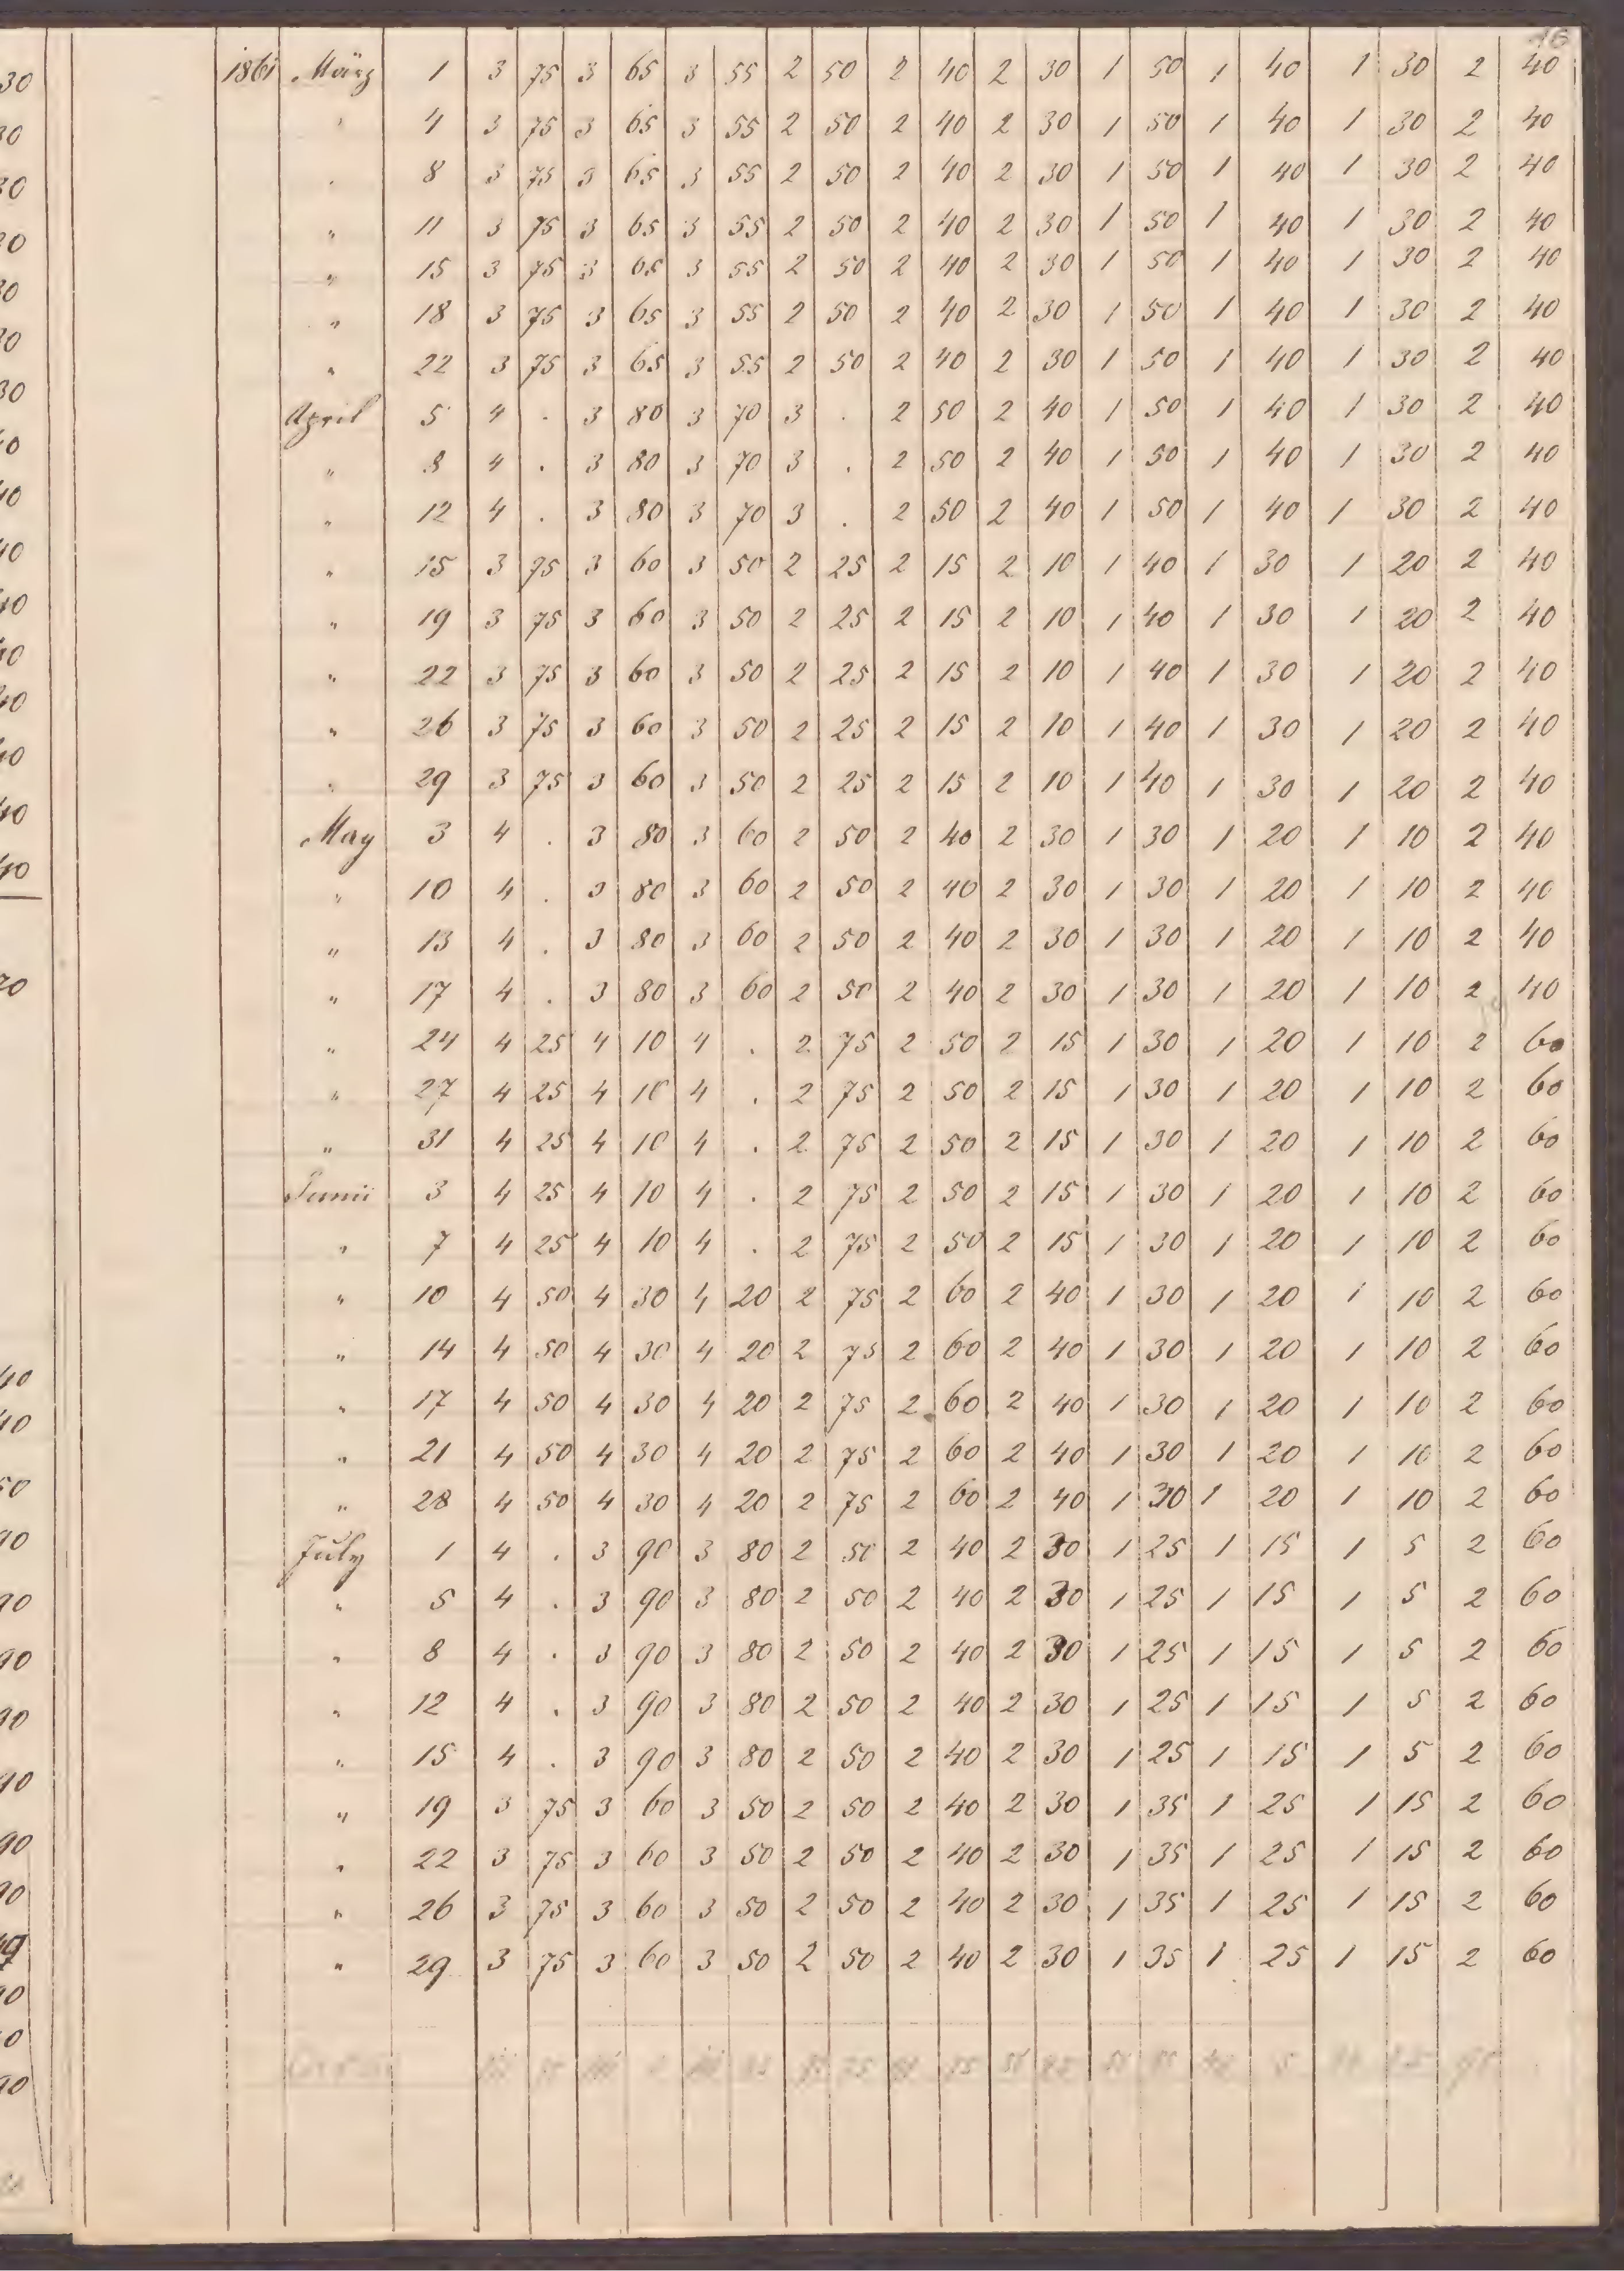 16
1861 März 1 3 75 3 65 3 55 2 50 2 40 2 30 1 50 1 40 1 30 2 40
" 4 3 75 3 65 3 55 2 50 2 40 2 30 1 50 1 40 1 30 2 40
" 8 3 75 3 65 3 55 2 50 2 40 2 30 1 50 1 40 1 30 2 40
" 11 3 75 3 65 3 55 2 50 2 40 2 30 1 50 1 40 1 30 2 40
" 15 3 75 3 65 3 55 2 50 2 40 2 30 1 50 1 40 1 30 2 40
" 18 3 75 3 65 3 55 2 50 2 40 2 30 1 50 1 40 1 30 2 40
" 22 3 75 3 65 3 55 2 50 2 40 2 30 1 50 1 40 1 30 2 40
April 5 4 . 3 80 3 70 3 . 2 50 2 40 1 50 1 40 1 30 2 40
" 8 4 . 3 80 3 70 3 . 2 50 2 40 1 50 1 40 1 30 2 40
" 12 4 . 3 80 3 70 3 . 2 50 2 40 1 50 1 40 1 30 2 40
" 15 3 75 3 60 3 50 2 25 2 15 2 10 1 40 1 30 1 20 2 40
" 19 3 75 3 60 3 50 2 25 2 15 2 10 1 40 1 30 1 20 2 40
" 22 3 75 3 60 3 50 2 25 2 15 2 10 1 40 1 30 1 20 2 40
" 26 3 75 3 60 3 50 2 25 2 15 2 10 1 40 1 30 1 20 2 40
" 29 3 75 3 60 3 50 2 25 2 15 2 10 1 40 1 30 1 20 2 40
May 3 4 . 3 80 3 60 2 50 2 40 2 30 1 30 1 20 1 10 2 40
" 10 4 . 3 80 3 60 2 50 2 40 2 30 1 30 1 20 1 10 2 40
" 13 4 . 3 80 3 60 2 50 2 40 2 30 1 30 1 20 1 10 2 40
" 17 4 . 3 80 3 60 2 50 2 40 2 30 1 30 1 20 1 10 2 40
" 24 4 25 4 10 4 . 2 75 2 50 2 15 1 30 1 20 1 10 2 60
" 27 4 25 4 10 4 . 2 75 2 50 2 15 1 30 1 20 1 10 2 60
" 31 4 25 4 10 4 . 2 75 2 50 2 15 1 30 1 20 1 10 2 60
Junii 3 4 25 4 10 4 . 2 75 2 50 2 15 1 30 1 20 1 10 2 60
" 7 4 25 4 10 4 . 2 75 2 50 2 15 1 30 1 20 1 10 2 60
" 10 4 50 4 30 4 20 2 75 2 60 2 40 1 30 1 20 1 10 2 60
" 14 4 50 4 30 4 20 2 75 2 60 2 40 1 30 1 20 1 10 2 60
" 17 4 50 4 30 4 20 2 75 2 60 2 40 1 30 1 20 1 10 2 60
" 21 4 50 4 30 4 20 2 75 2 60 2 40 1 30 1 20 1 10 2 60
" 28 4 50 4 30 4 20 2 75 2 60 2 40 1 30 1 20 1 10 2 60
July 1 4 . 3 90 3 80 2 50 2 40 2 30 1 25 1 15 1 5 2 60
" 5 4 . 3 90 3 80 2 50 2 40 2 30 1 25 1 15 1 5 2 60
" 8 4 . 3 90 3 80 2 50 2 40 2 30 1 25 1 15 1 5 2 60
" 12 4 . 3 90 3 80 2 50 2 40 2 30 1 25 1 15 1 5 2 60
" 15 4 . 3 90 3 80 2 50 2 40 2 30 1 25 1 15 1 5 2 60
" 19 3 75 3 60 3 50 2 50 2 40 2 30 1 35 1 25 1 15 2 60
" 22 3 75 3 60 3 50 2 50 2 40 2 30 1 35 1 25 1 15 2 60
" 26 3 75 3 60 3 50 2 50 2 40 2 30 1 35 1 25 1 15 2 60
" 29 3 75 3 60 3 50 2 50 2 40 2 30 1 35 1 25 1 15 2 60